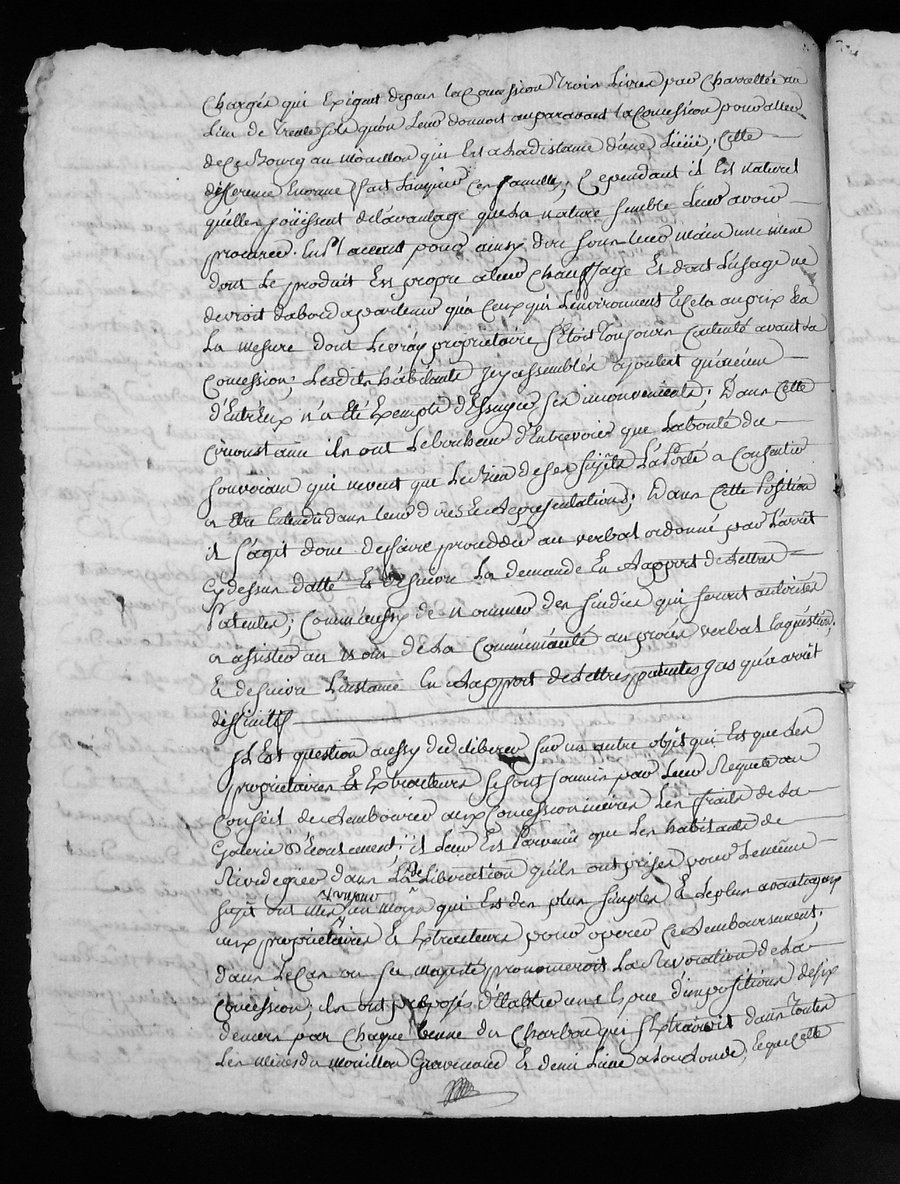 Chargés qui Exigent depuis la Concession trois Livres par Charrettée au
Lieu de trente sols qu'on Leur donnoit auparavant la Concession pour aller
de Ce Bourg au mouillon qui Est a la distance d'une Lieüe, Cette
differance Enorme fait Languir Ces familles, Cependant il Est naturel
qu'elles joüissent de l'avantage que La nature semble Leur avoir
procurée. Ens L'accent pour ainsy dire sous Leur main une mine
dont Le produit Est propre a leur Chauffage Et dont L'usage ne
devroit d'abord apartenir qu'a Ceux qui L'environnent Et Cela au prix Et a
La mesure dont Le vray proprietaire s'Etoit toujours Contenté avant La
Concession, Lesdits habitants icy assemblés ajoutent qu'aucun
d'Entr'Eux n'a Eté Exempte d'Essuyer Ses inconvenients; Dans Cette
Circonstance ils ont Le bonheur d'Entrevoir que La bonté du
Souverain qui ne veut que Le Bien de ses Sujets L'a Porté a Consentir
a Etre Entendu dans leurs dires Et Representations, Dans Cette Position
il s'agit donc de faire proceder au verbal ordonné par L'arrêt
Cy dessus datté Et de Suivre La demande En Rapport de Lettres
Patentes; Comm'aussy de Nommer des sindics qui seront autorisés
a assister au Nom de La Communauté au procès verbal En question,
Et de suivre L'instance En Rapport de Lettres patentes jus qu'a arrêt
deffinitif
Il Est question aussy de deliberer Sur un autre objêt qui Est que Les
proprietaires Et Extracteurs se sont soumis par Leur Requete au
Conseil de Rembourcer aux Concessionnaires Les fraits de La
Galerie d'Ecoulement; il Leur Est Parvenu que Les habitants de
Rivedegier dans La deliberation qu'ils ont prises pour Le même
sujêt ont trouvé un moyen qui Est des plus simples Et Le plus avantageux
aux proprietaires Et Extracteurs pour operer Ce Remboursement,
dans Le Cas ou Sa Majesté prononceroit La Revocation de La
Concession, ils ont proposés d'Etablir une Espece d'imposition de six
deniers par Chaque benne du Charbon qui s'Extrairoit dans toutes
Les mines du mouillon Gravenand Et demi Lieüe a La Ronde, Lequelle